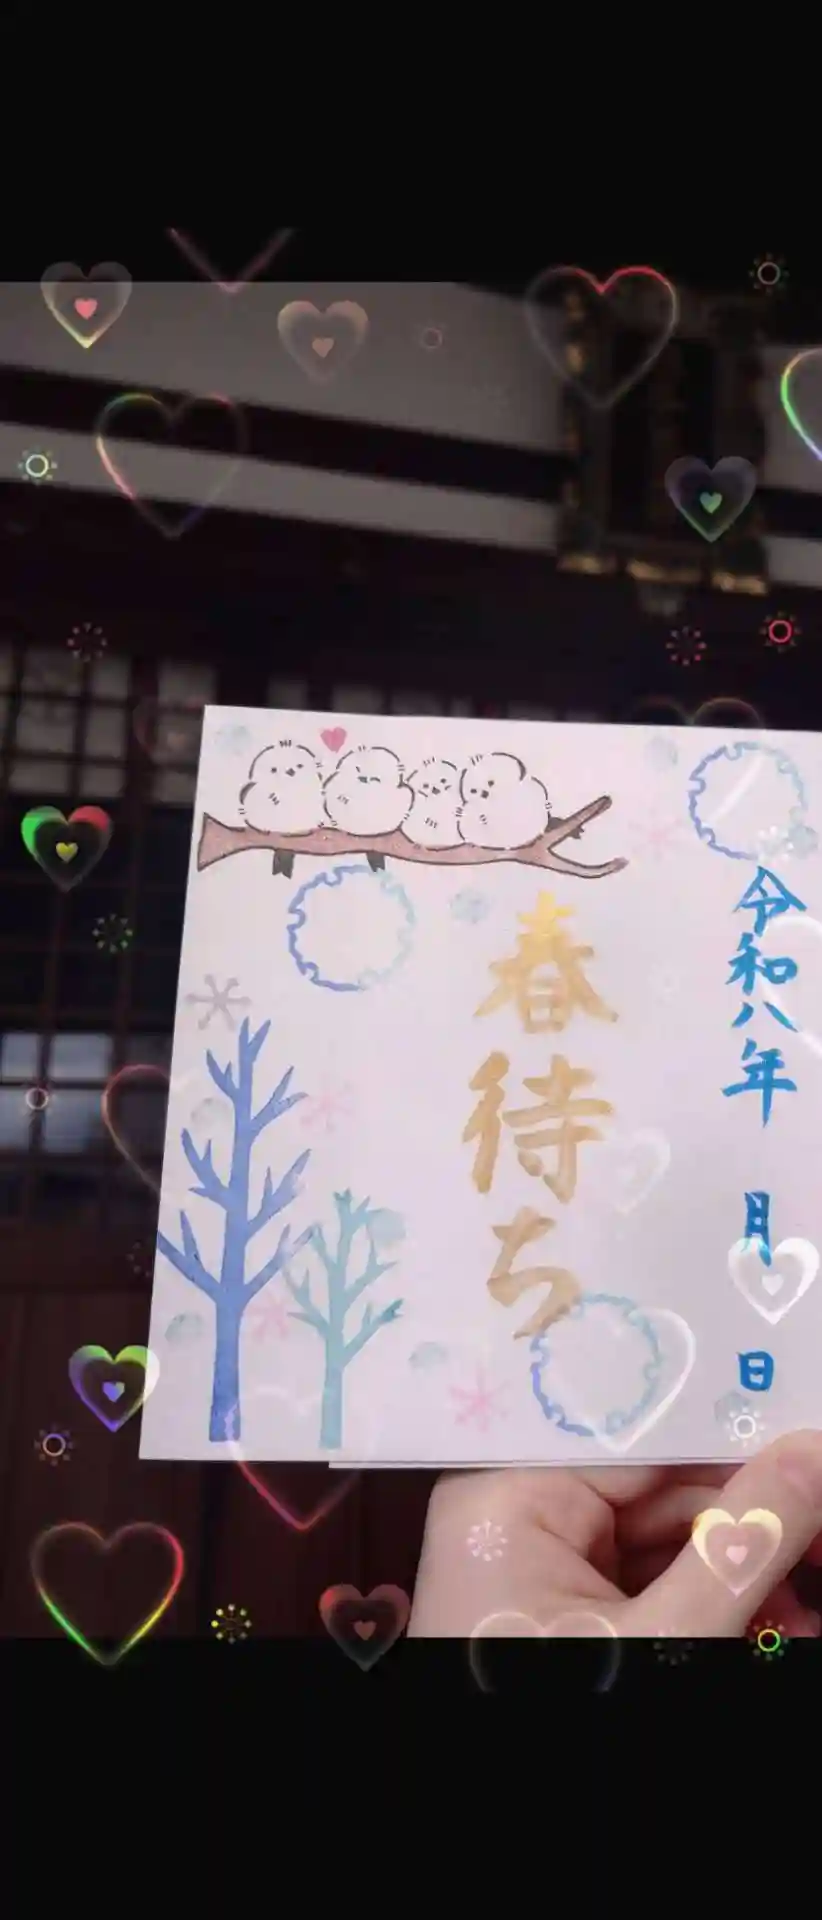 令和八年 月 日
春待ち